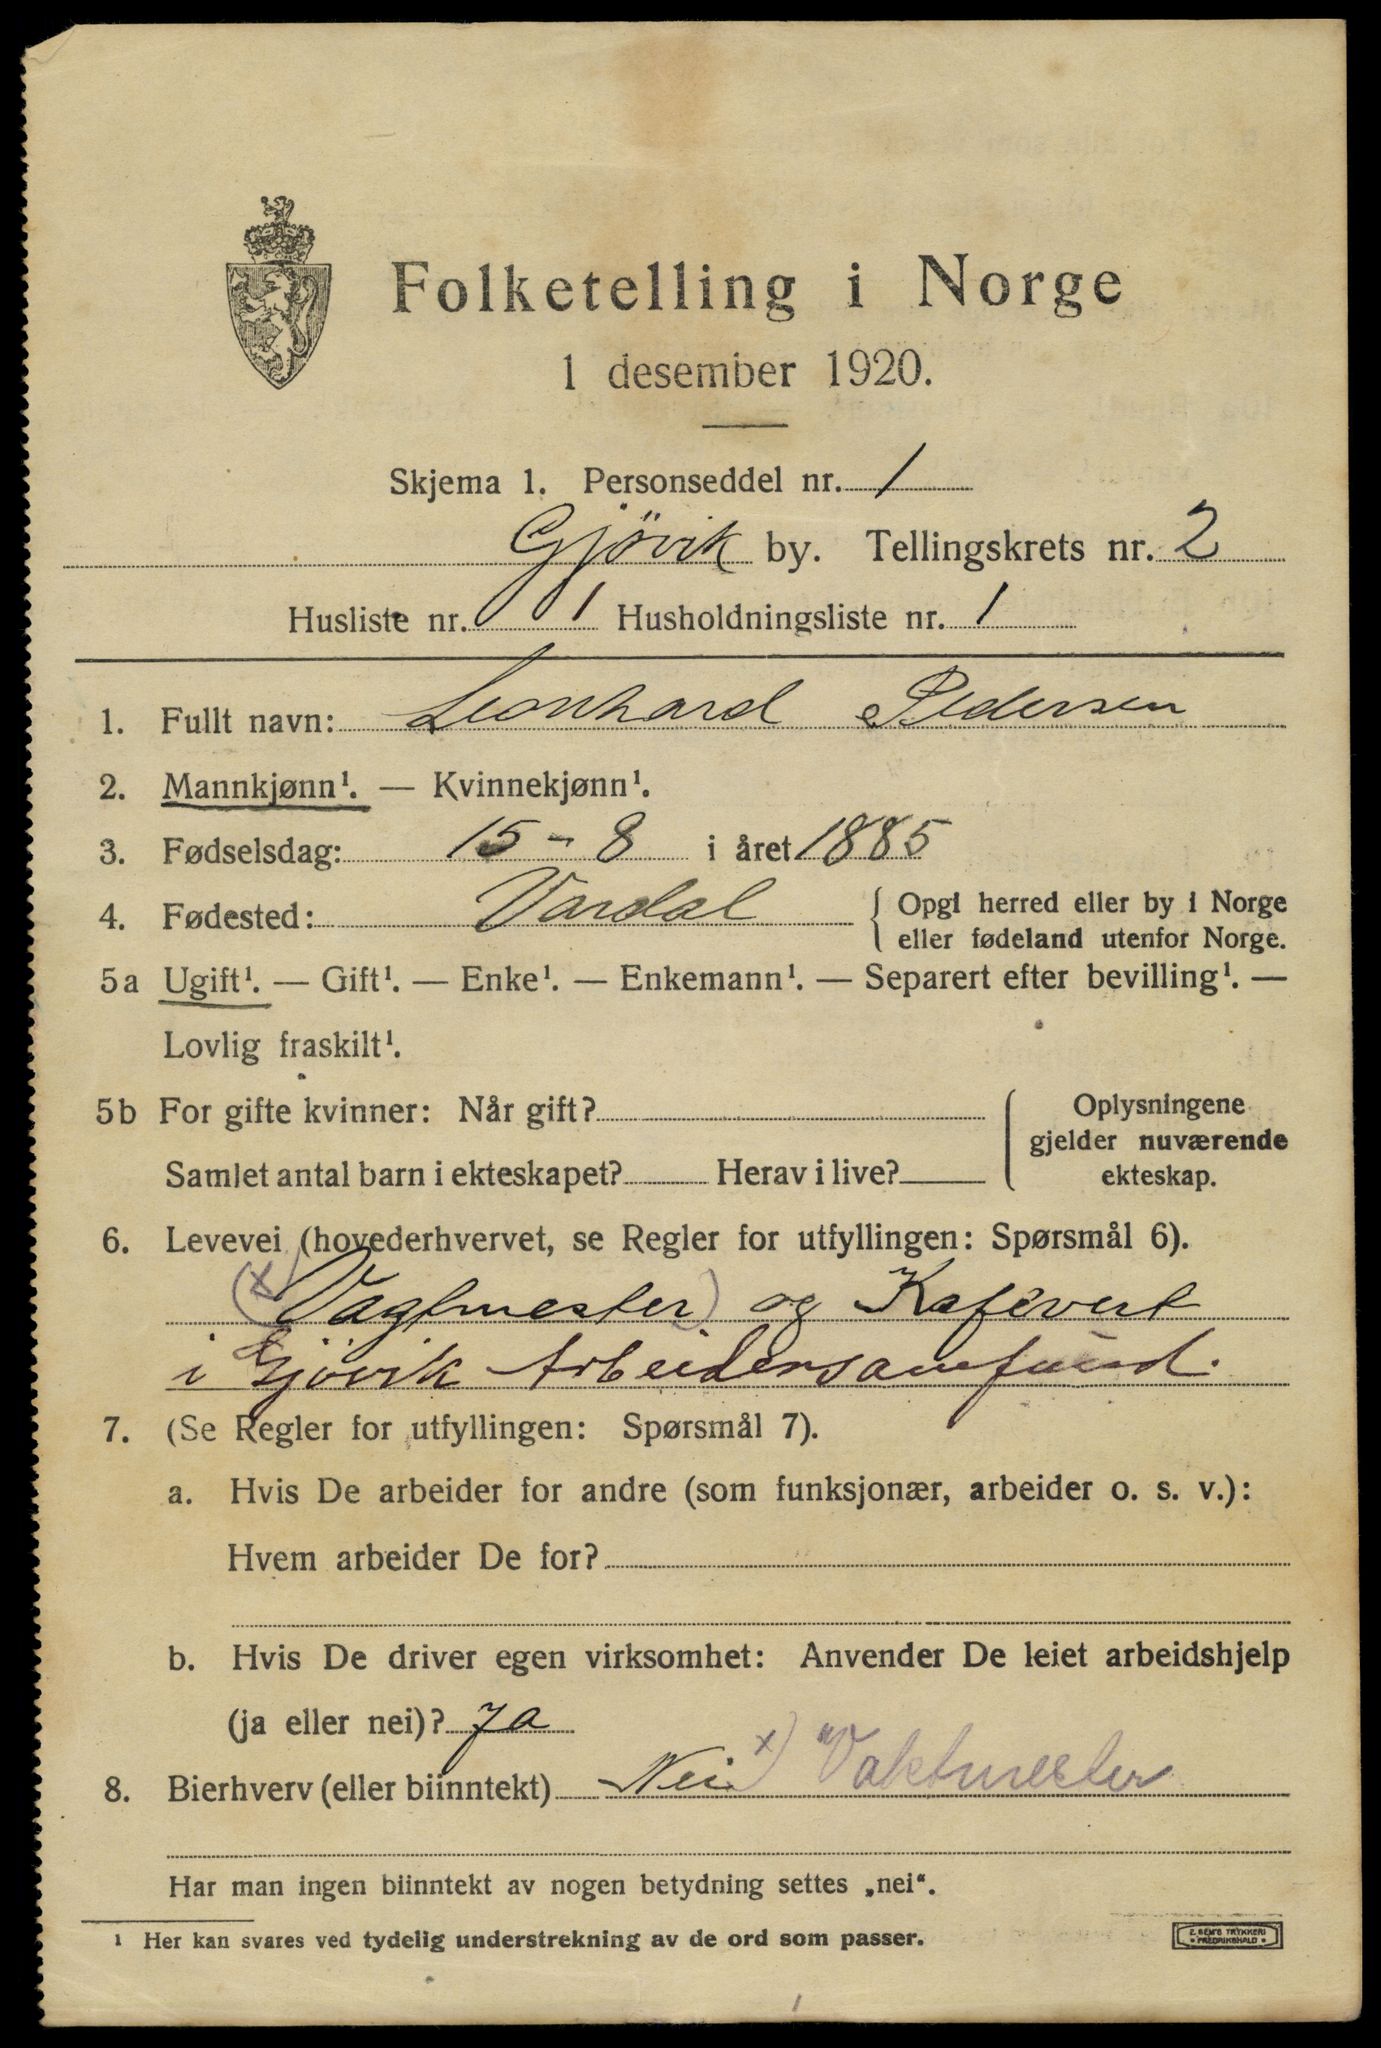 Folketelling i Norge
1 desember 1920.
Skjema 1. Personseddel nr. 1
Gjövik by. Tellingskrets nr. 2
Husliste nr. 1 Husholdningsliste nr. 1
1. Fullt navn: Leonhard Pedersen
2. Mannkjønn¹. — Kvinnekjønn¹.
3. Fødselsdag: 15-8 i året 1885
4. Fødested: Vardal { Opgi herred eller by i Norge
eller fødeland utenfor Norge.
5a Ugift¹. — Gift¹. — Enke¹. — Enkemann¹. — Separert efter bevilling¹. —
Lovlig fraskilt¹.
5b For gifte kvinner: Når gift? Oplysningene
gjelder nuværende
Samlet antal barn i ekteskapet? Herav i live? ekteskap.
6. Levevei (hovederhvervet, se Regler for utfyllingen: Spørsmål 6).
(x) Vagtmester) og Kafévert
i Gjövik Arbeidersamfund.
7. (Se Regler for utfyllingen: Spørsmål 7).
a. Hvis De arbeider for andre (som funksjonær, arbeider o. s. v.):
Hvem arbeider De for?
b. Hvis De driver egen virksomhet: Anvender De leiet arbeidshjelp
(ja eller nei)? Ja
8. Bierhverv (eller biinntekt) Nei x) Vaktmester
Har man ingen biinntekt av nogen betydning settes „nei“.
¹ Her kan svares ved tydelig understrekning av de ord som passer.
E. SEM'S TRYKKERI
FREDRIKSHALD